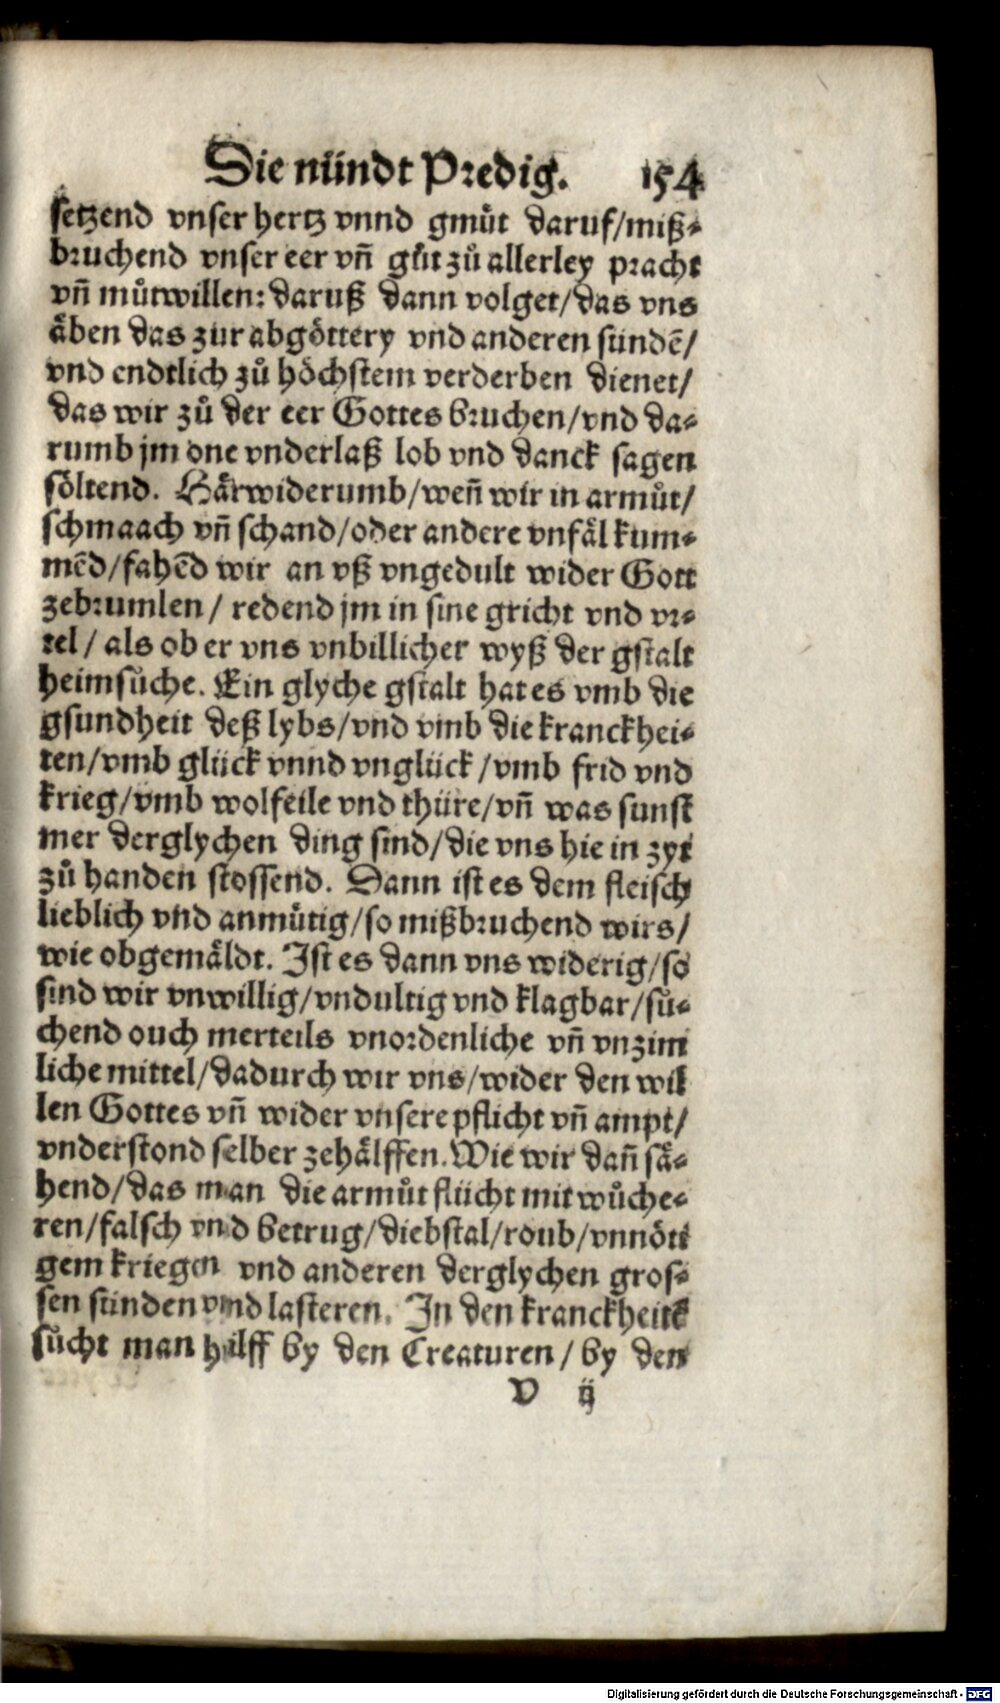 Die nündt Predig. 154
setzend vnser hertz vnnd gmuͤt daruf/miß⸗
bruchend vnser eer vñ guͦt zuͦ allerley pracht
vñ muͦtwillen: daruß dann volget/das vns
aͤben das zur abgoͤttery vnd anderen sündē/
vnd endtlich zuͦ hoͤchstem verderben dienet/
das wir zuͦ der eer Gottes bruchen/vnd da⸗
rumb jm one vnderlaß lob vnd danck sagen
soͤltend. Haͤrwiderumb/weñ wir in armuͦt/
schmaach vñ schand/oder andere vnfaͤl kum⸗
mēd/fahēd wir an vß vngedult wider Gott
zebrumlen/ redend jm in sine gricht vnd vr⸗
tel/ als ob er vns vnbillicher wyß der gstalt
heimsuͦche. Ein glyche gstalt hat es vmb die
gsundheit deß lybs/vnd vmb die kranckhei⸗
ten/vmb glück vnnd vnglück/vmb frid vnd
krieg/vmb wolfeile vnd thüre/vñ was sunst
mer derglychen ding sind/die vns hie in zyt
zuͦ handen stossend. Dann ist es dem fleisch
lieblich vnd anmuͤtig/so mißbruchend wirs/
wie obgemaͤldt. Ist es dann vns widerig/so
sind wir vnwillig/vndultig vnd klagbar/suͦ⸗
chend ouch merteils vnordenliche vñ vnzim
liche mittel/dadurch wir vns/wider den wil
len Gottes vñ wider vnsere pflicht vñ ampt/
vnderstond selber zehaͤlffen. Wie wir dañ saͤ⸗
hend/das man die armuͦt flücht mit wuͦche⸗
ren/falsch vnd betrug/diebstal/roub/vnnoͤti
gem kriegen vnd anderen derglychen gros⸗
sen sünden vnnd lasteren. In den kranckheitē
suͦcht man hilff by den Creaturen/ by den
V ij
Digitalisierung gefördert durch die Deutsche Forschungsgemeinschaft - DFG